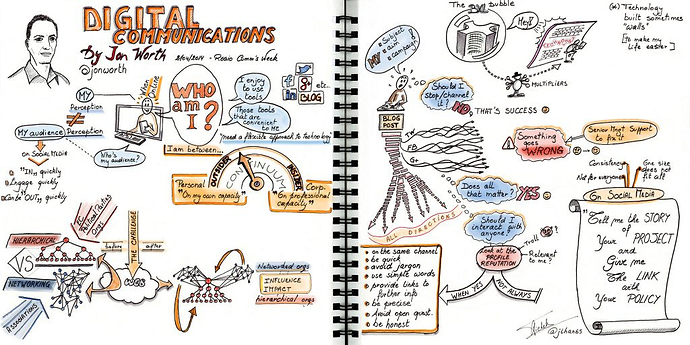 DIGITAL
COMMUNICATIONS
By Jon Worth
- Regio Comm's Week
@jonworth
MY
Perception
≠
MY audience
Perception
When
Online
WHO
am I?
Who's my
audience?
I enjoy
to use
tools
Those tools
that are
convenient
to ME
in
g+
etc.
BLOG
"need a flexible approach to technology"
on SOCIAL MEDIA
"IN" quickly
Engage quickly
Can be "OUT" quickly
I am between...
OUTSIDER
CONTINUUM
INSIDER
Personal
"On my own capacity"
Corp.
"On professional
capacity"
Political Parties
Orgs
HIERARCHICAL
VS
NETWORKING
ASSOCIATIONS
THE CHALLENGE
before
after
WEB
Networked orgs
INFLUENCE
IMPACT
hierarchical orgs
Subject
aim
campaign
BLOG
POST
Should I
stop/channel
it?
NO
THAT'S SUCCESS
TW
FB
G+
ALL DIRECTIONS
Does all
that matter?
YES
Should I
interact with
anyone?
Look at the
PROFILE
REPUTATION
Troll
Relevant
to me?
WHEN YES
NOT ALWAYS
on the same channel
be quick
avoid jargon
use simple words
provide links to
further info
be precise
Avoid open quest.
be honest
The BXL bubble
Hey!
MULTIPLIERS
(*) Technology
built sometimes
"walls"
[To make my
life easier]
Something
goes
WRONG
Senior Mngt Support
to fix it
Consistency
Not for everyone
One size
does not
fit all
On SOCIAL MEDIA
"Tell me the STORY
of
Your PROJECT
and
Give me
The LINK
with
Your POLICY
@jchan65